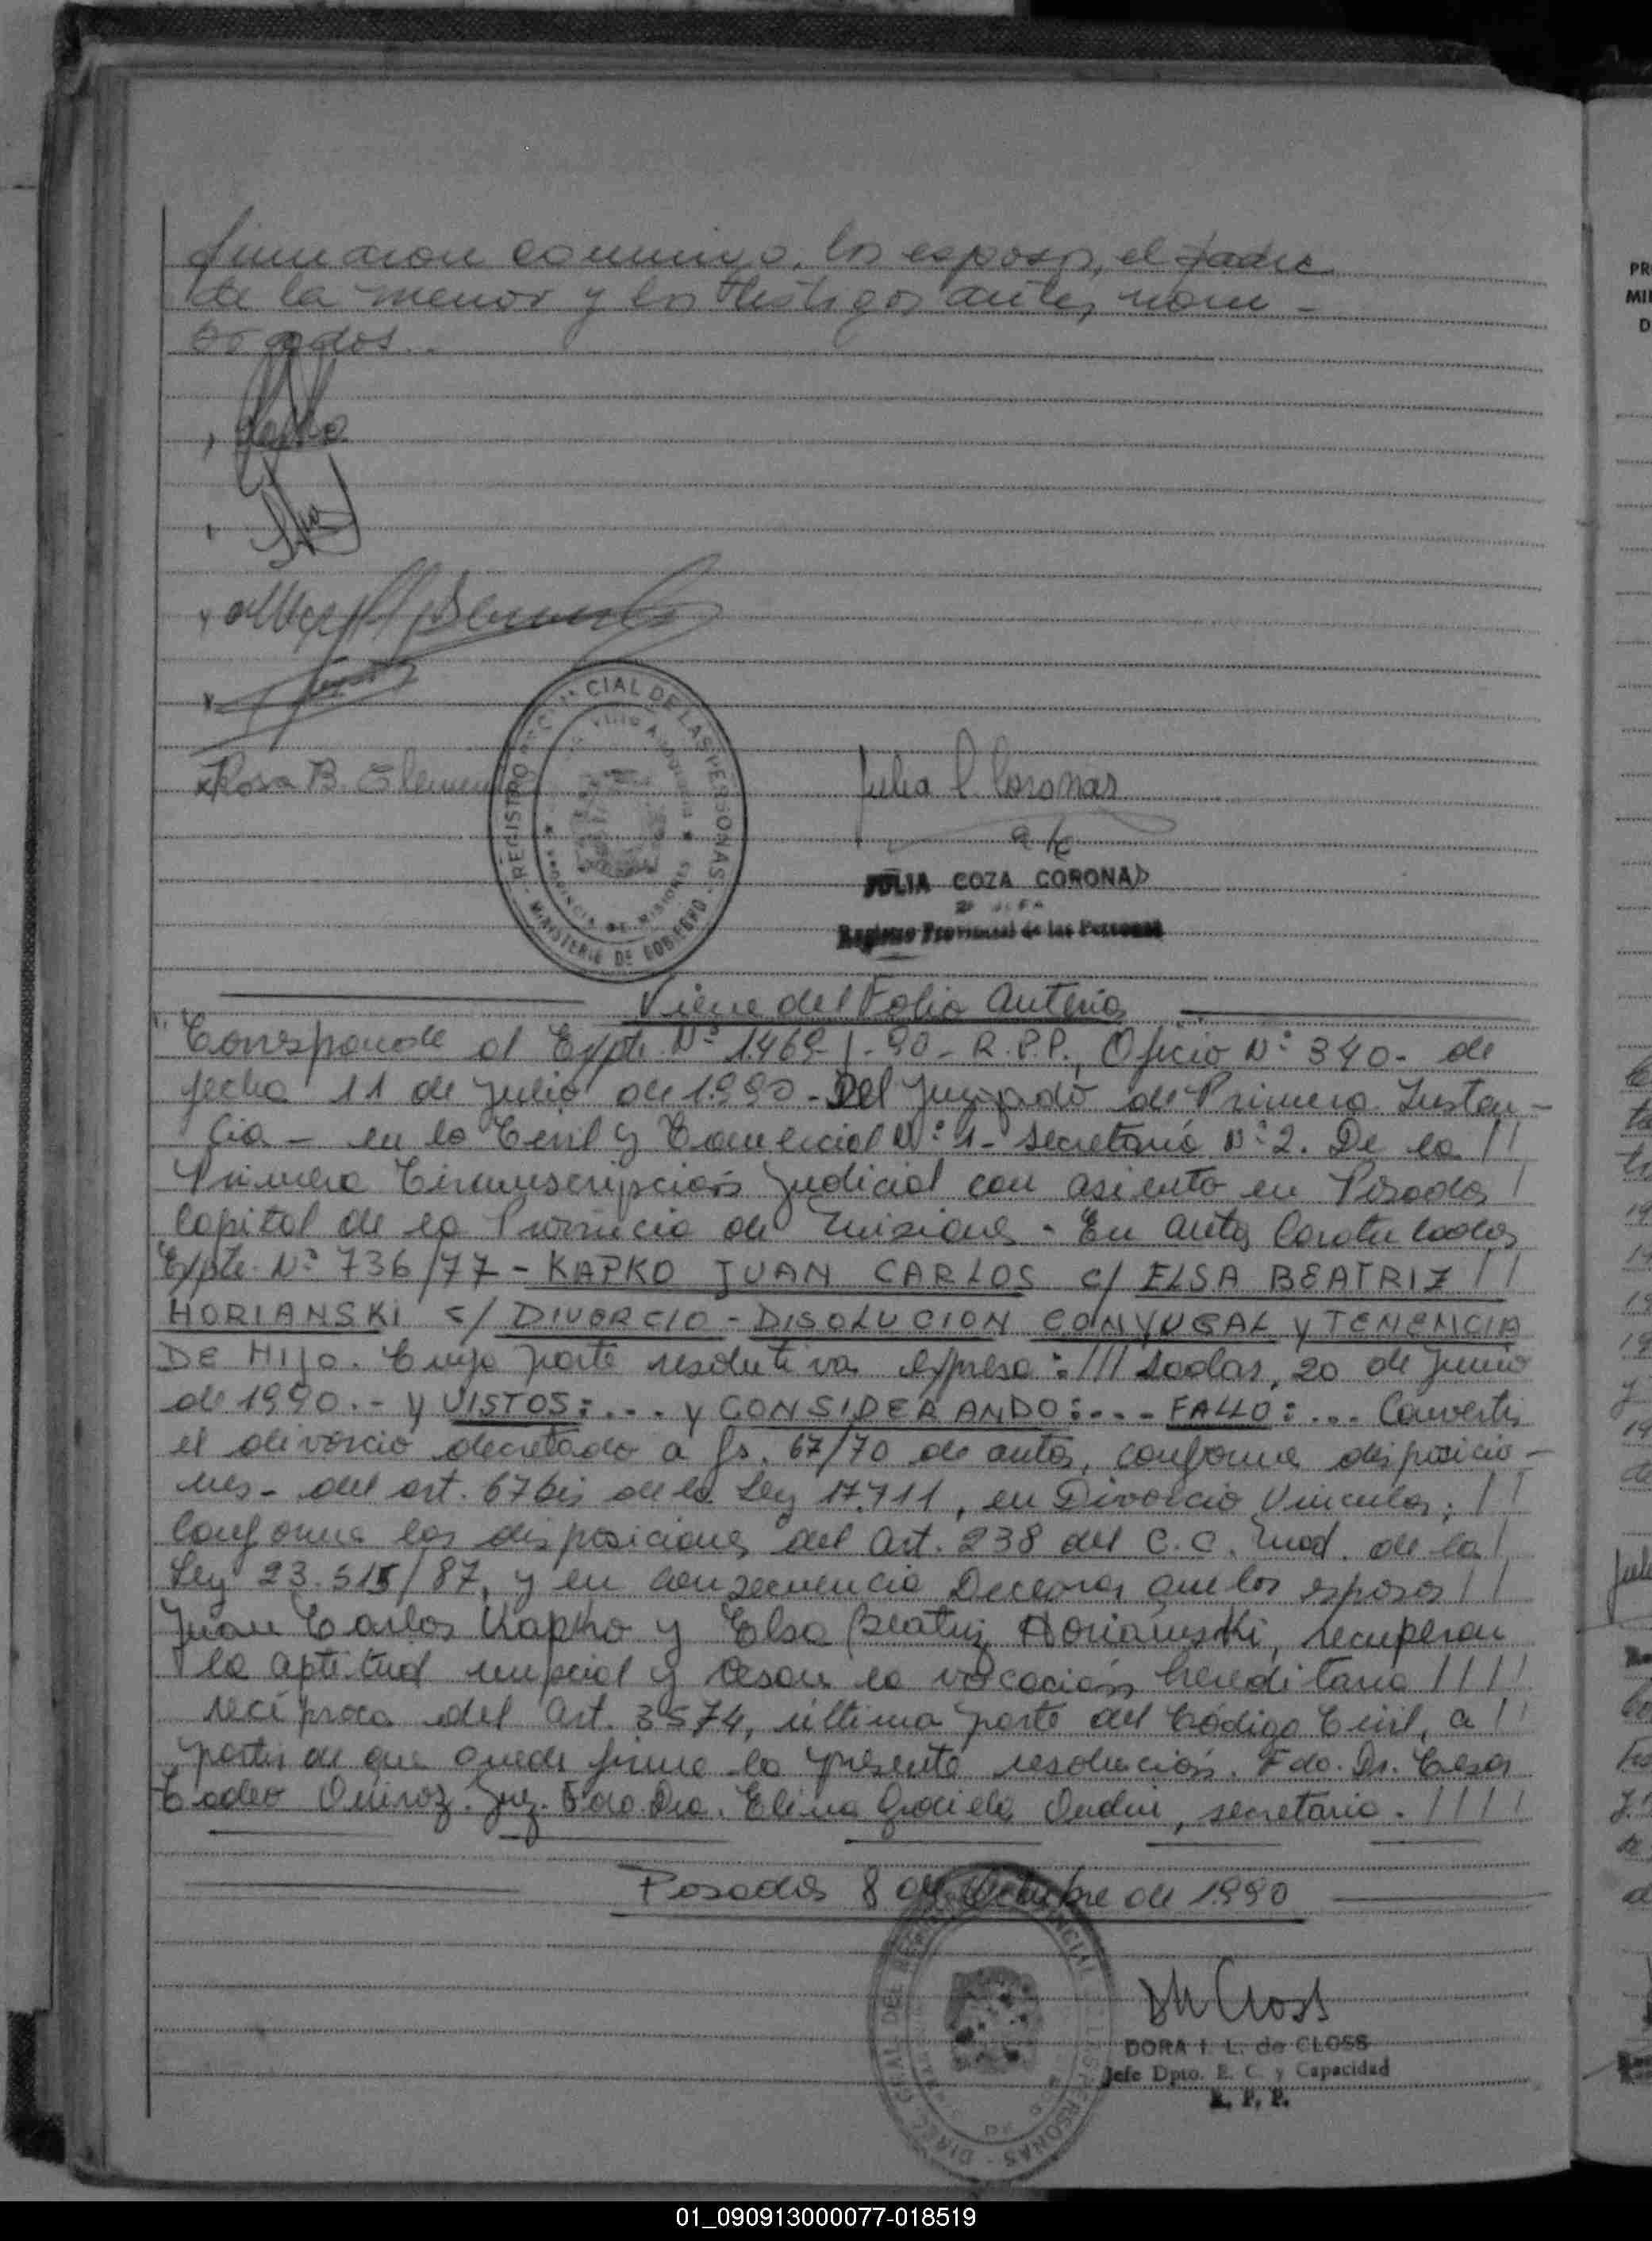 firmaron conmigo, los esposos, el padre
de la menor y los testigos antes nom-
brados.-
Rosa B.
Julia C. Coronas
a/c
JULIA COZA CORONAD
JEFA
Registro Provincial de las Personas
REGISTRO PROVINCIAL DE LAS PERSONAS - MINISTERIO DE GOBIERNO
PROVINCIA DE MISIONES
Viene del Folio Anterior
Corresponde al Expte. Nº 1469-I-90-R.P.P., Oficio Nº 340- de
fecha 11 de Julio de 1990-Del Juzgado de Primera Instan-
cia- en lo Civil y Comercial Nº 1- secretaría Nº 2. De la //
Primera Circunscripción Judicial con asiento en Posadas /
Capital de la Provincia de Misiones - En autos Caratulados
Expte. Nº 736/77-KAPKO JUAN CARLOS c/ ELSA BEATRIZ //
HORIANSKI s/ DIVORCIO-DISOLUCION CONYUGAL y TENENCIA
DE HIJO. Cuya parte resolutiva expresa: ///sadas, 20 de Junio
de 1990.- y VISTOS:... y CONSIDERANDO:...- FALLO:... Convertir
el divorcio decretado a fs. 67/70 de autos, conforme disposicio-
nes- del art. 67bis de la Ley 17.711, en Divorcio Vincular; //
Conforme las disposiciones del Art. 238 del C.C. mod. de la /
Ley 23.515/87, y en consecuencia Declarar que los esposos //
Juan Carlos Kapko y Elsa Beatriz Horianski, recuperan
la aptitud nupcial y cesan la vocación hereditaria ////
recíproca del Art. 3574, última parte del Código Civil, a //
partir de que quede firme la presente resolución. Fdo. Dr. Cesar
Tadeo Quiroz. Juez. Fdo. Dra. Elina Graciela, secretaria. ////
Posadas 8 de Octubre de 1990
DM Closs
DORA I. L. de CLOSS
Jefe Dpto. E. C. y Capacidad
R. P. P.
01_090913000077-018519